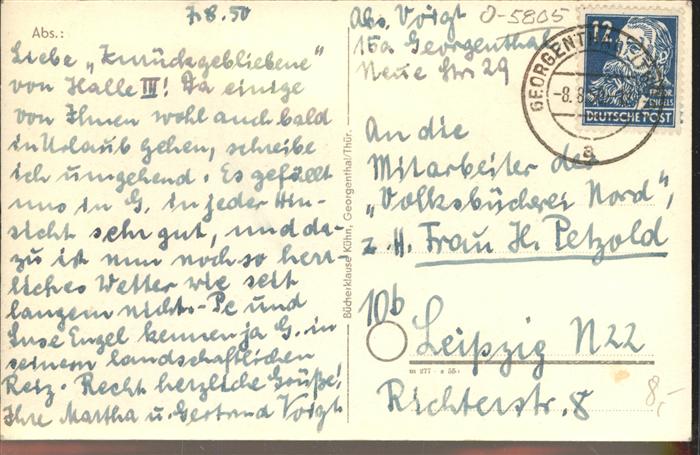 7.8.50
Abs.:
Liebe „Zurückgebliebene"
von Halle III! Da einige
von Ihnen wohl auch bald
in Urlaub gehen, schreibe
ich umgehend. Es gefällt
uns in G. in jeder Hin-
sicht sehr gut, und da-
zu ist nun noch so herr-
liches Wetter wie seit
langem nicht. - Pe und
Suse Engel kennen ja G. in
seinem landschaftlichen
Reiz. Recht herzliche Grüße!
Ihre Martha u. Gertrud Voigt
Bücherklause Kühn, Georgenthal/Thür.
Abs. Voigt O-5805
15a Georgenthal
Neue Str. 29
12
ENGELS
DEUTSCHE POST
GEORGENTHAL
-8.8.50
a
An die
Mitarbeiter der
„Volksbücherei Nord",
z. H. Frau H. Petzold
10b
Leipzig N22
m 277
Richterstr. 8
8,-